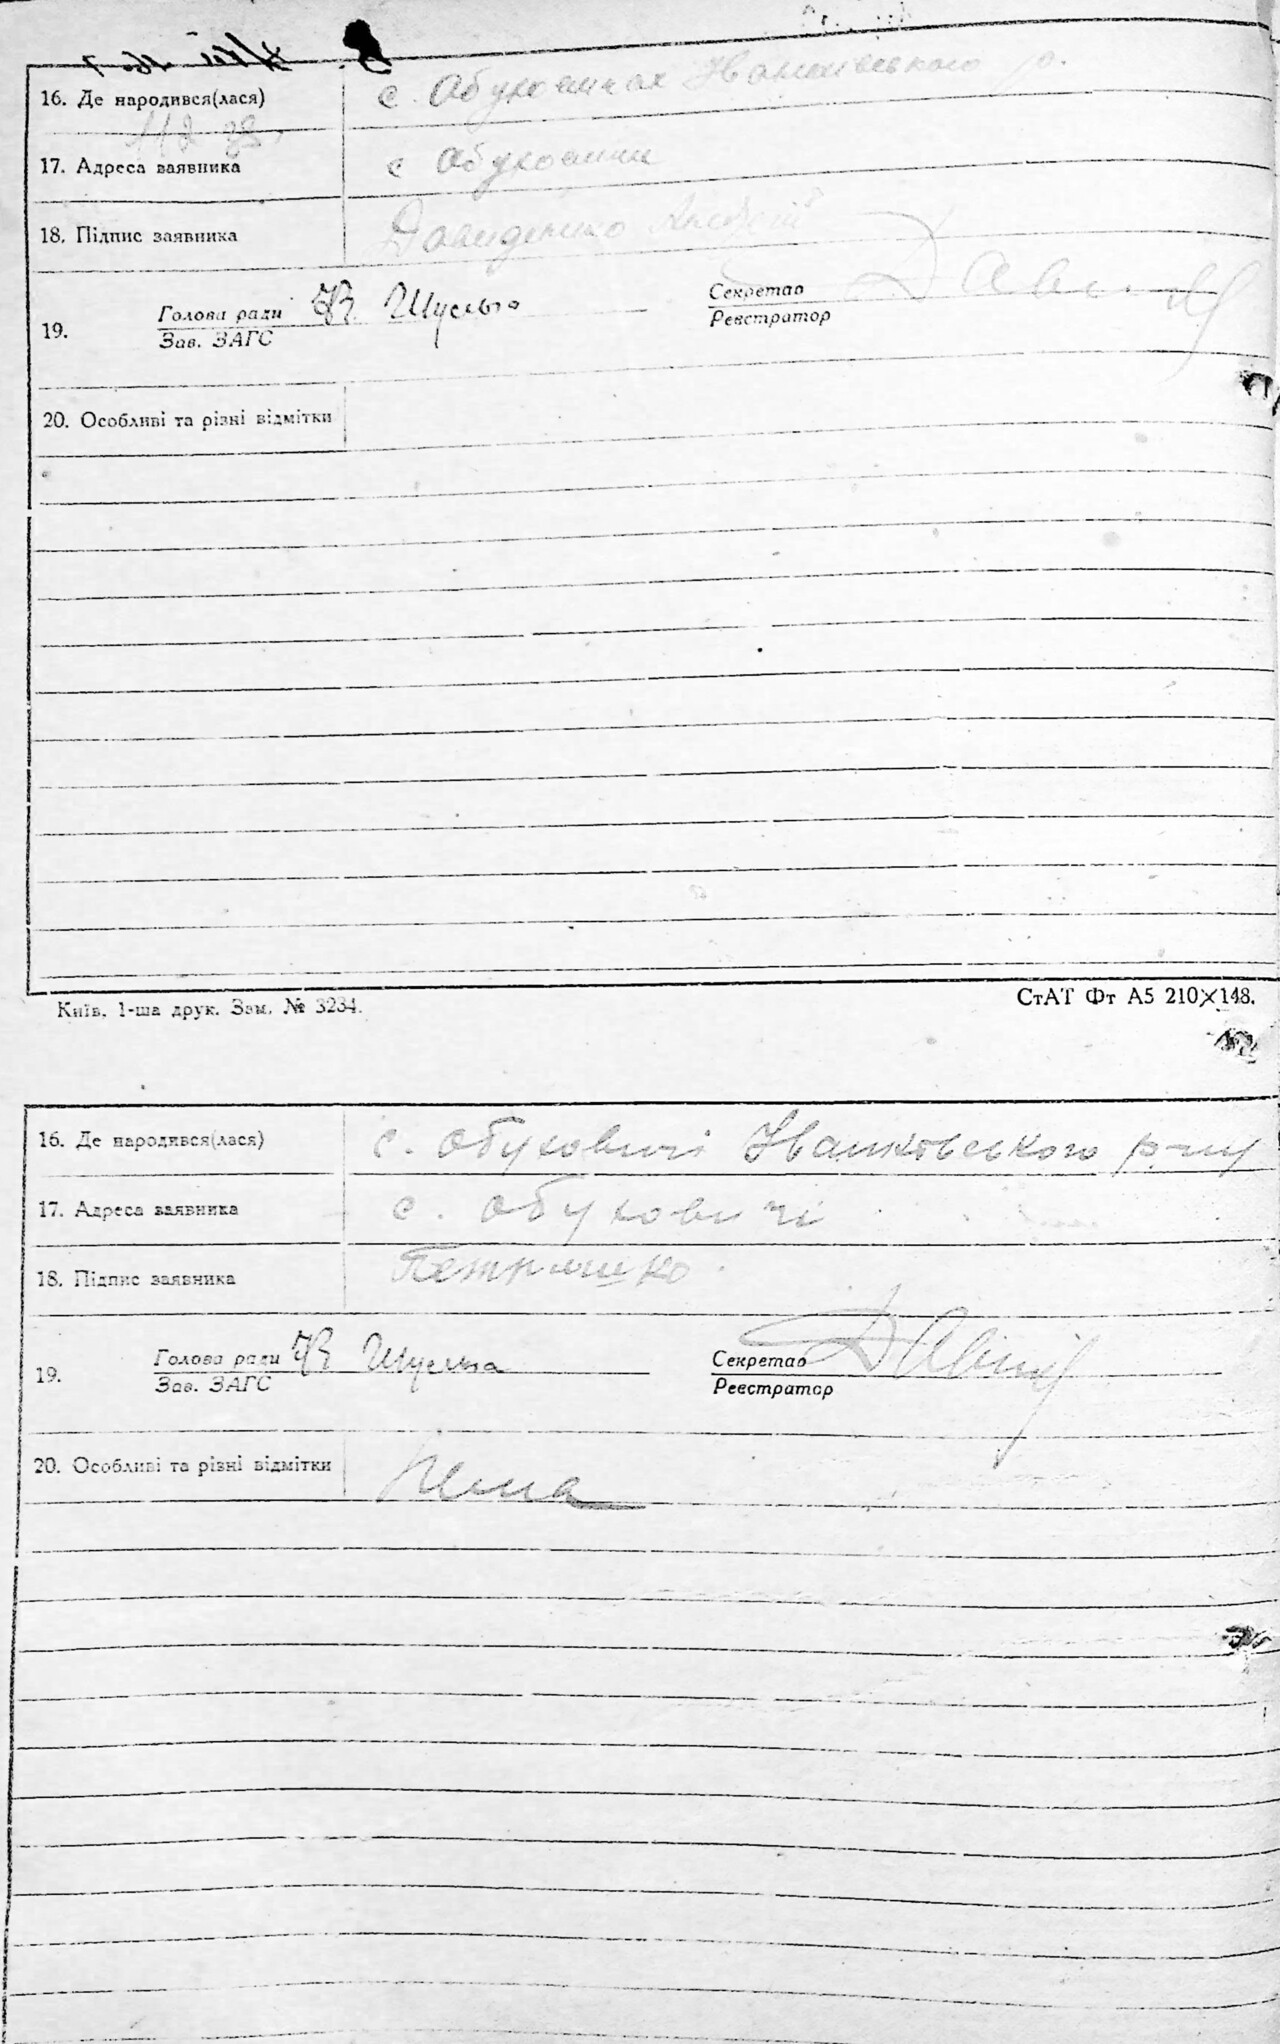 16. Де народився(лася) с. Обуховичах Іванківського р.
17. Адреса заявника с Обуховичи
18. Підпис заявника Давиденко
19. Голова ради Шульга Секретар
Зав. ЗАГС Реєстратор
20. Особливі та різні відмітки
Київ. 1-ша друк. Зам. № 3234. СтАТ Фт А5 210×148.
16. Де народився(лася) с. Обуховичі Іванківського р-ну
17. Адреса заявника с. Обуховичі
18. Підпис заявника Петришко
19. Голова ради Шульга Секретар
Зав. ЗАГС Реєстратор
20. Особливі та різні відмітки Нема